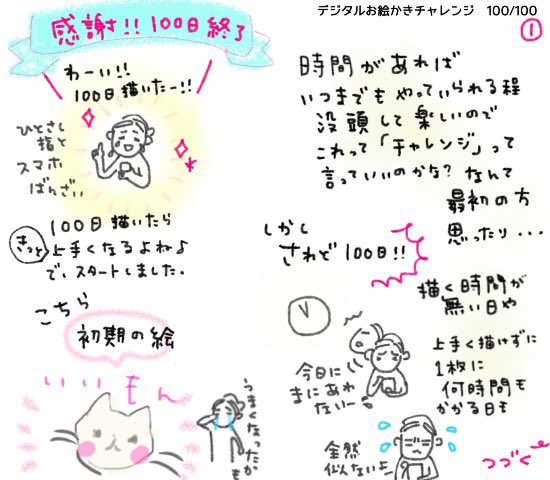 デジタルお絵かきチャレンジ 100/100
①
感謝!! 100日終了
わーい!!
100日描いたー!!
ひとさし
指と
スマホ
ばんざい
100日 描いたら
きっと
上手くなるよね♪
で、スタートしました。
こちら
初期の絵
いいもん
うまくなったかも
時間があれば
いつまでも やっていられる程
没頭して楽しいので
これって「チャレンジ」って
言っていいのかな? なんて
最初の方
思ったり...
しかし
されど 100日!!
描く時間が
無い日や
今日に
まにあわ
ないー
上手く描けずに
1枚に
何時間も
かかる日も
全然
似ないよ
つづく